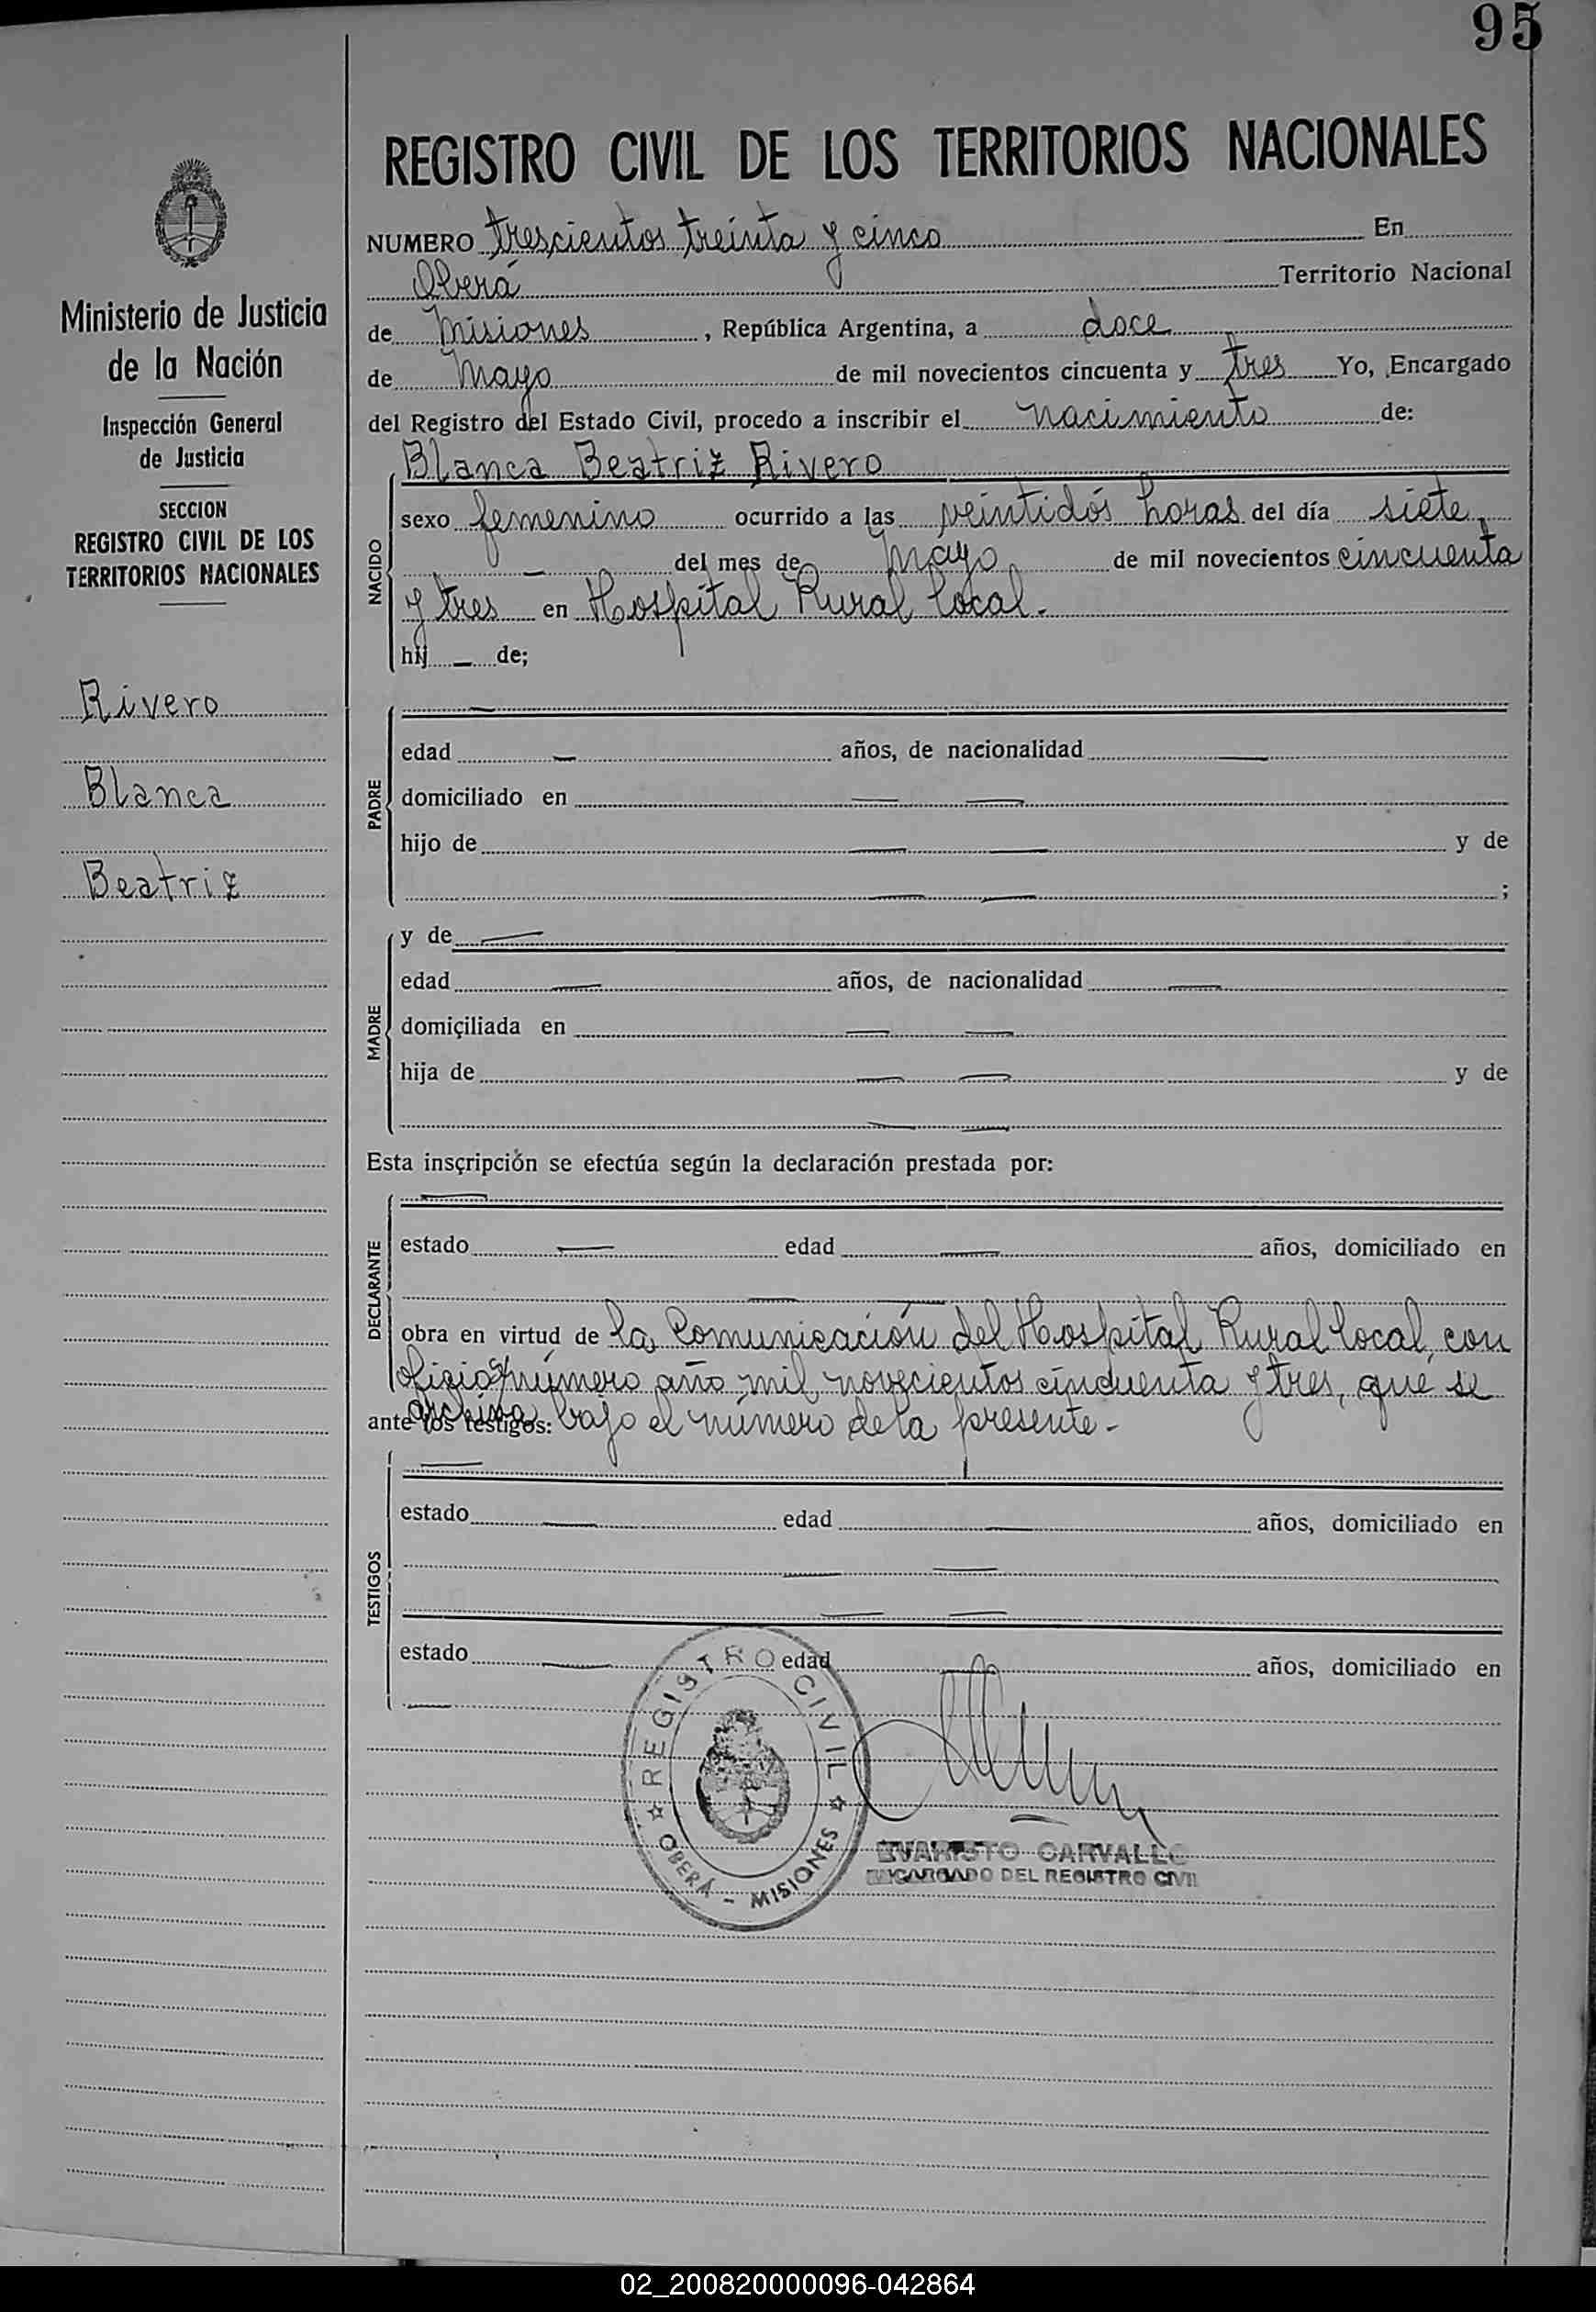 95
REGISTRO CIVIL DE LOS TERRITORIOS NACIONALES
Ministerio de Justicia
de la Nación
Inspección General
de Justicia
SECCION
REGISTRO CIVIL DE LOS
TERRITORIOS NACIONALES
Rivero
Blanca
Beatriz
NUMERO trescientos treinta y cinco En
Oberá Territorio Nacional
de Misiones, República Argentina, a doce
de Mayo de mil novecientos cincuenta y tres Yo, Encargado
del Registro del Estado Civil, procedo a inscribir el nacimiento de:
Blanca Beatriz Rivero
NACIDO
sexo femenino ocurrido a las veintidós horas del día siete,
— del mes de mayo de mil novecientos cincuenta
y tres en Hospital Rural local.
hij — de;
PADRE
—
edad — años, de nacionalidad —
domiciliado en — —
hijo de — — y de
— — ;
MADRE
y de —
edad — años, de nacionalidad —
domiciliada en — —
hija de — — y de
— —
Esta inscripción se efectúa según la declaración prestada por:
DECLARANTE
—
estado — edad — años, domiciliado en
— —
obra en virtud de la Comunicación del Hospital Rural local, con
oficio número año mil novecientos cincuenta y tres, que se
archiva bajo el número de la presente-
ante los testigos:
TESTIGOS
—
estado — edad — años, domiciliado en
— —
— —
estado — edad años, domiciliado en
—
REGISTRO CIVIL
OBERÁ - MISIONES
EVARISTO CARVALLO
ENCARGADO DEL REGISTRO CIVIL
02_200820000096-042864